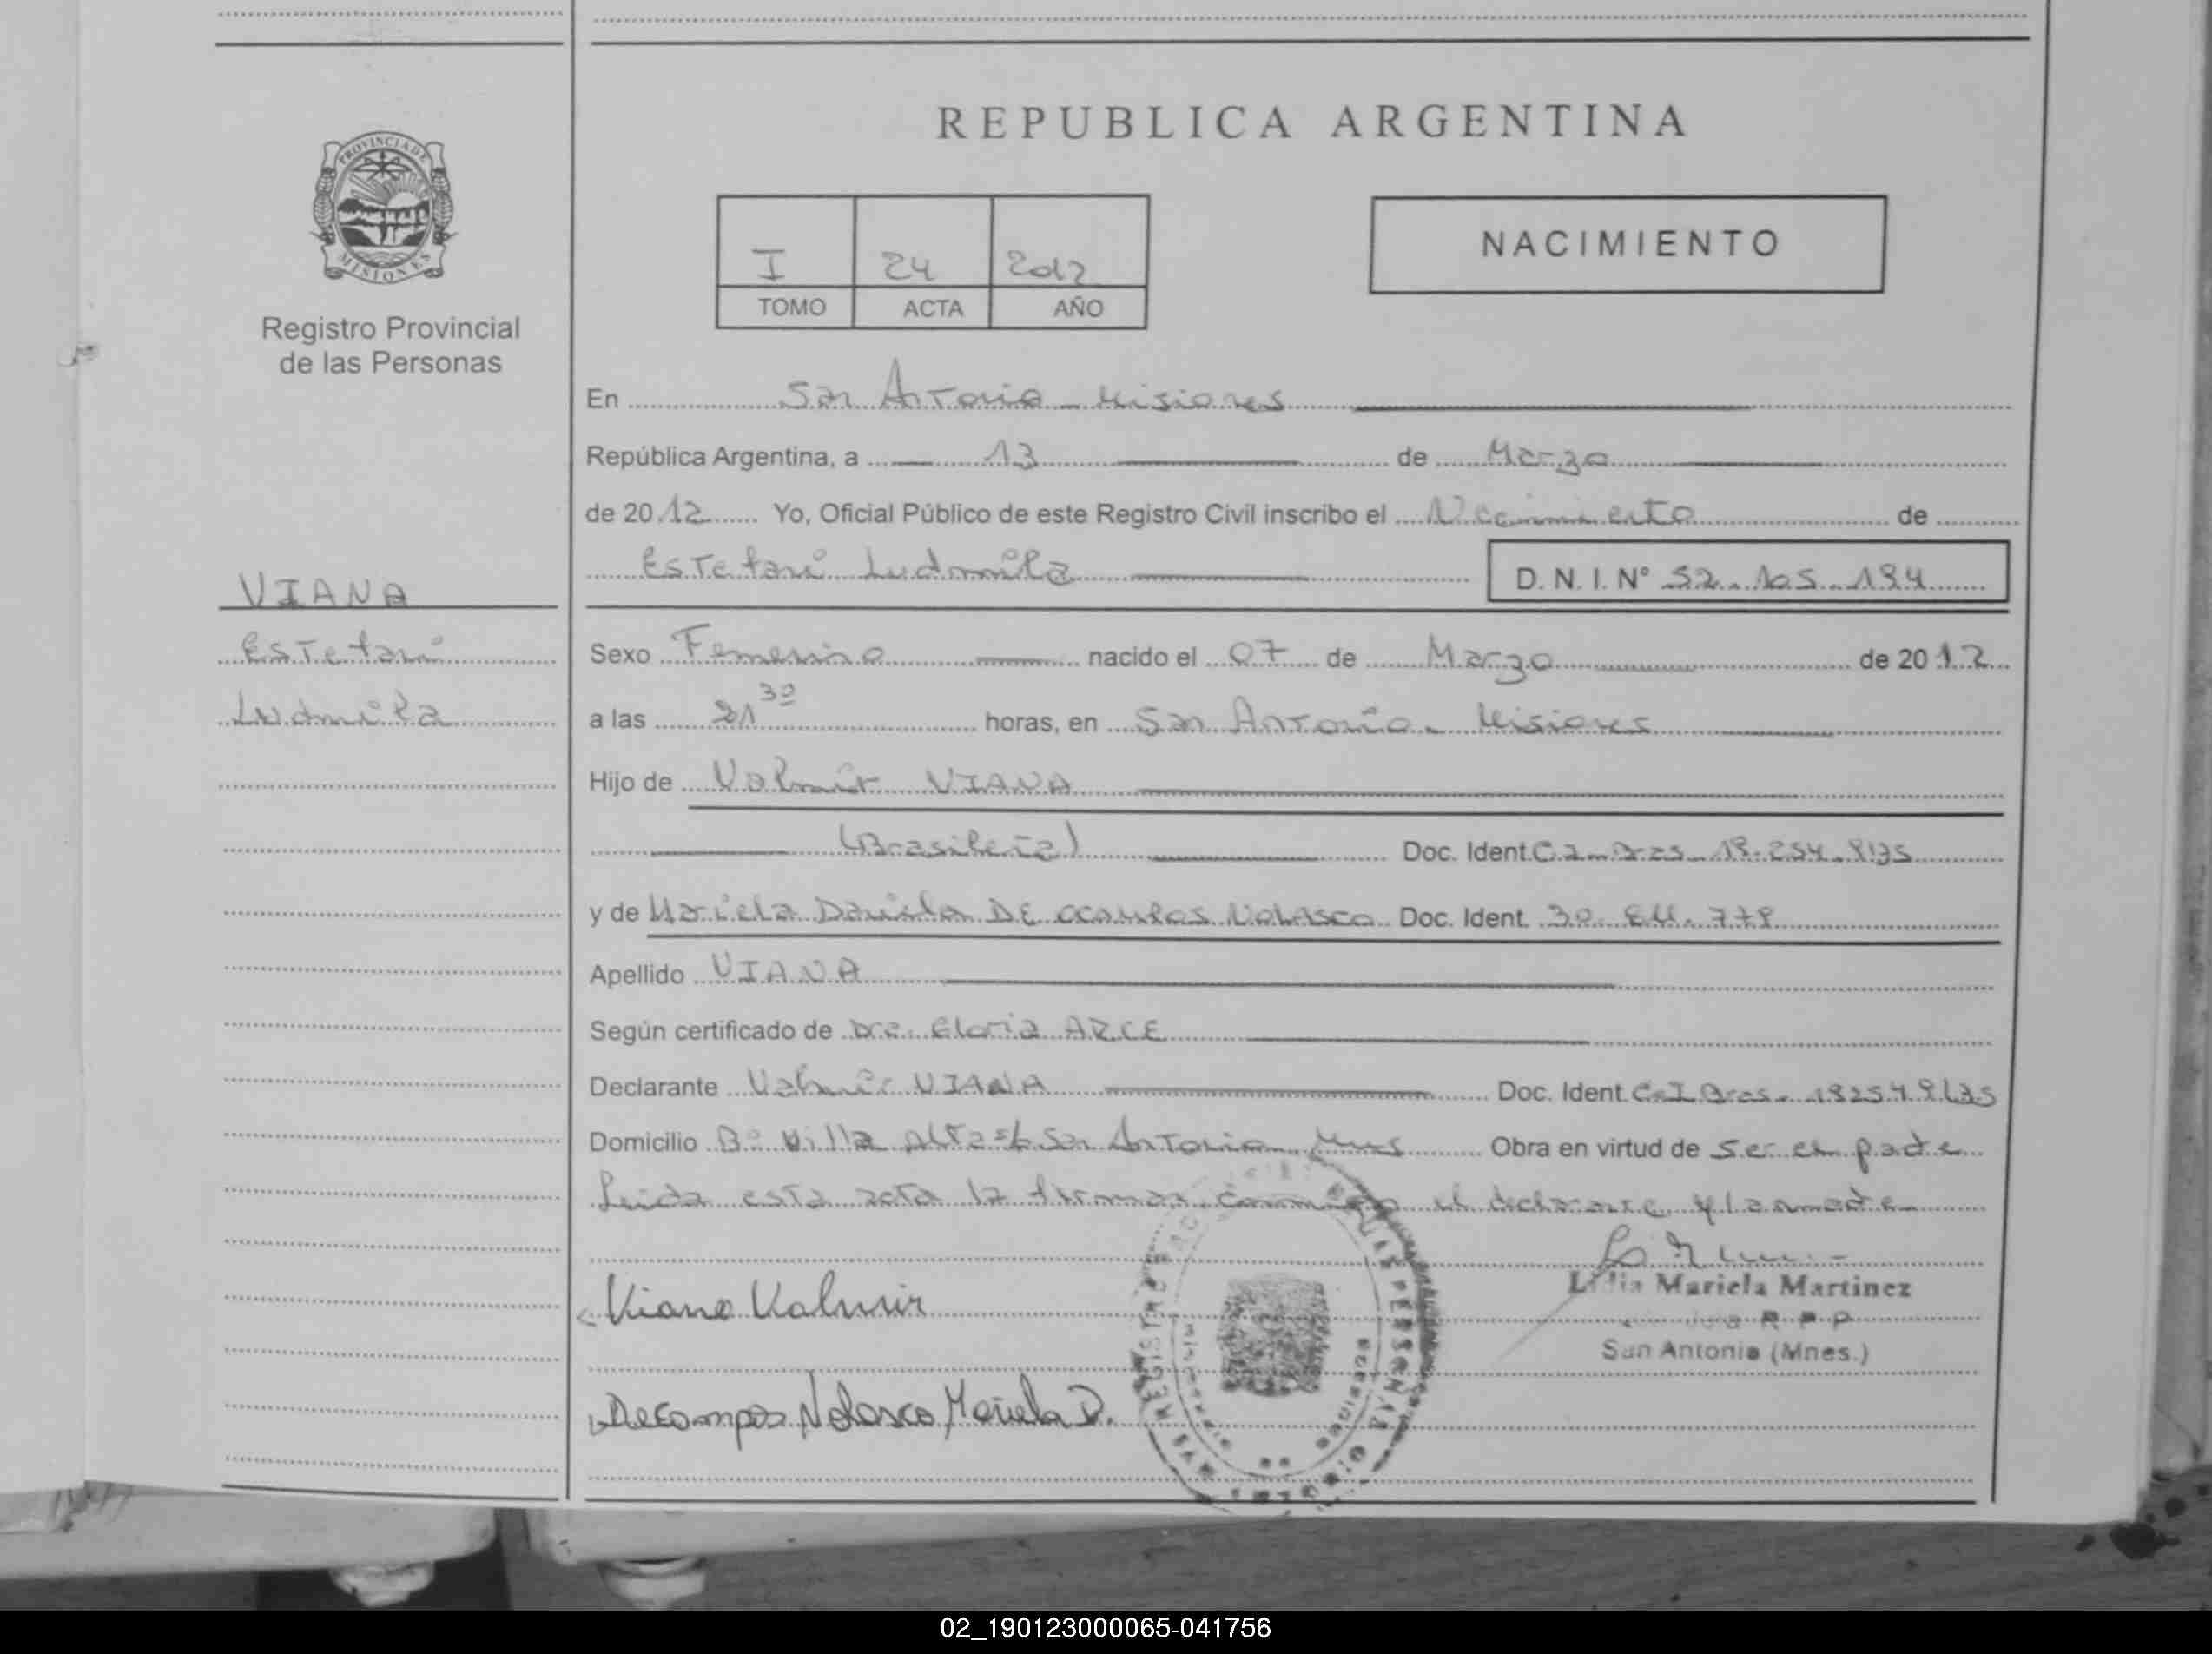 REPUBLICA ARGENTINA
PROVINCIA DE MISIONES
Registro Provincial
de las Personas
I 24 2012
TOMO ACTA AÑO
NACIMIENTO
En San Antonio - Misiones
República Argentina, a 13 de Marzo
de 2012 Yo, Oficial Público de este Registro Civil inscribo el Nacimiento de
Estefani Ludmila D. N. I. Nº 52.105.194
VIANA
Estefani
Ludmila
Sexo Femenino nacido el 07 de Marzo de 2012
a las 21 30 horas, en San Antonio - Misiones
Hijo de Valmir VIANA
(Brasileña) Doc. Ident
y de Mariela Daniela DE OCAMPOS NOLASCO Doc. Ident. 30.
Apellido VIANA
Según certificado de Dra. Gloria ARCE
Declarante Valmir VIANA Doc. Ident C.I Bras.
Domicilio Bº Villa Alta San Antonio Mnes Obra en virtud de ser el padre
Leida esta acta la firman conmigo el declarante y la madre
Viana Valmir
Lidia Mariela Martinez
R P P
San Antonio (Mnes.)
Decampos Nolasco Mariela D.
02_190123000065-041756